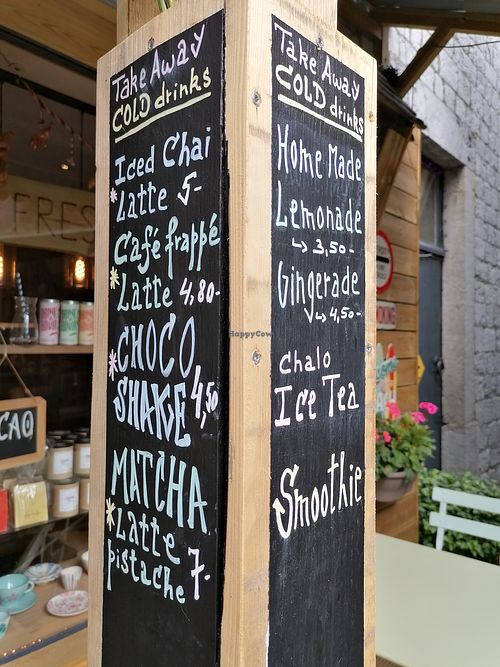 Take Away
COLD drinks
Iced Chai
* Latte 5-
Café frappé
* Latte 4,80-
* CHOCO
SHAKE 4,50
MATCHA
* Latte
pistache 7-
Take Away
COLD drinks
Home Made
Lemonade
↳ 3,50-
Gingerade
↳ 4,50-
Chalo
Ice Tea
Smoothie
FRES
CAO
HappyCow